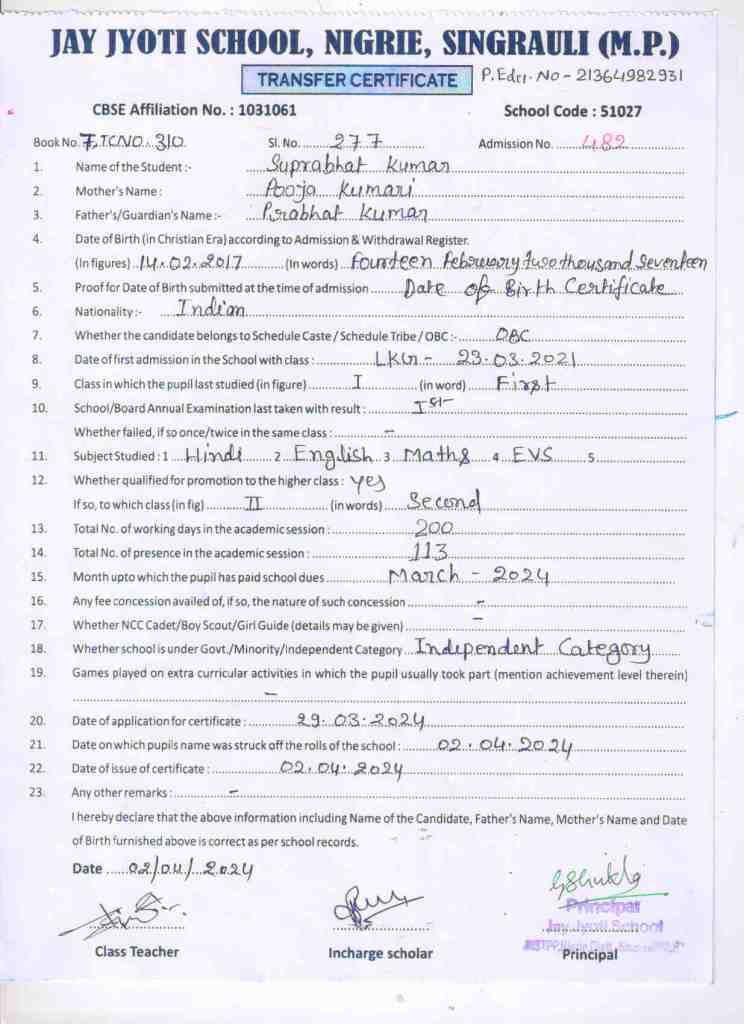 JAY JYOTI SCHOOL, NIGRIE, SINGRAULI (M.P.)
TRANSFER CERTIFICATE P. Edu. No - 21364982931
CBSE Affiliation No. : 1031061 School Code : 51027
Book No. 7, TC NO. 310 Sl. No. 277 Admission No. 482
1. Name of the Student :- Suprabhat Kumar
2. Mother's Name : Pooja Kumari
3. Father's/Guardian's Name :- Prabhat Kumar
4. Date of Birth (in Christian Era) according to Admission & Withdrawal Register.
(In figures) 14.02.2017 (In words) Fourteen February two thousand Seventeen
5. Proof for Date of Birth submitted at the time of admission Date of Birth Certificate
6. Nationality :- Indian
7. Whether the candidate belongs to Schedule Caste / Schedule Tribe / OBC :- OBC
8. Date of first admission in the School with class : LKG - 23.03.2021
9. Class in which the pupil last studied (in figure) I (in word) First
10. School/Board Annual Examination last taken with result : Ist
Whether failed, if so once/twice in the same class : -
11. Subject Studied : 1 Hindi 2 English 3 Maths 4 EVS 5
12. Whether qualified for promotion to the higher class : Yes
If so, to which class (in fig) II (in words) Second
13. Total No. of working days in the academic session : 200
14. Total No. of presence in the academic session : 113
15. Month upto which the pupil has paid school dues March - 2024
16. Any fee concession availed of, if so, the nature of such concession -
17. Whether NCC Cadet/Boy Scout/Girl Guide (details may be given) -
18. Whether school is under Govt./Minority/Independent Category Independent Category
19. Games played on extra curricular activities in which the pupil usually took part (mention achievement level therein)
-
20. Date of application for certificate : 29.03.2024
21. Date on which pupils name was struck off the rolls of the school : 02.04.2024
22. Date of issue of certificate : 02.04.2024
23. Any other remarks : -
I hereby declare that the above information including Name of the Candidate, Father's Name, Mother's Name and Date
of Birth furnished above is correct as per school records.
Date 02/04/2024
GShukla
Principal
Jay Jyoti School
Class Teacher Incharge scholar Principal